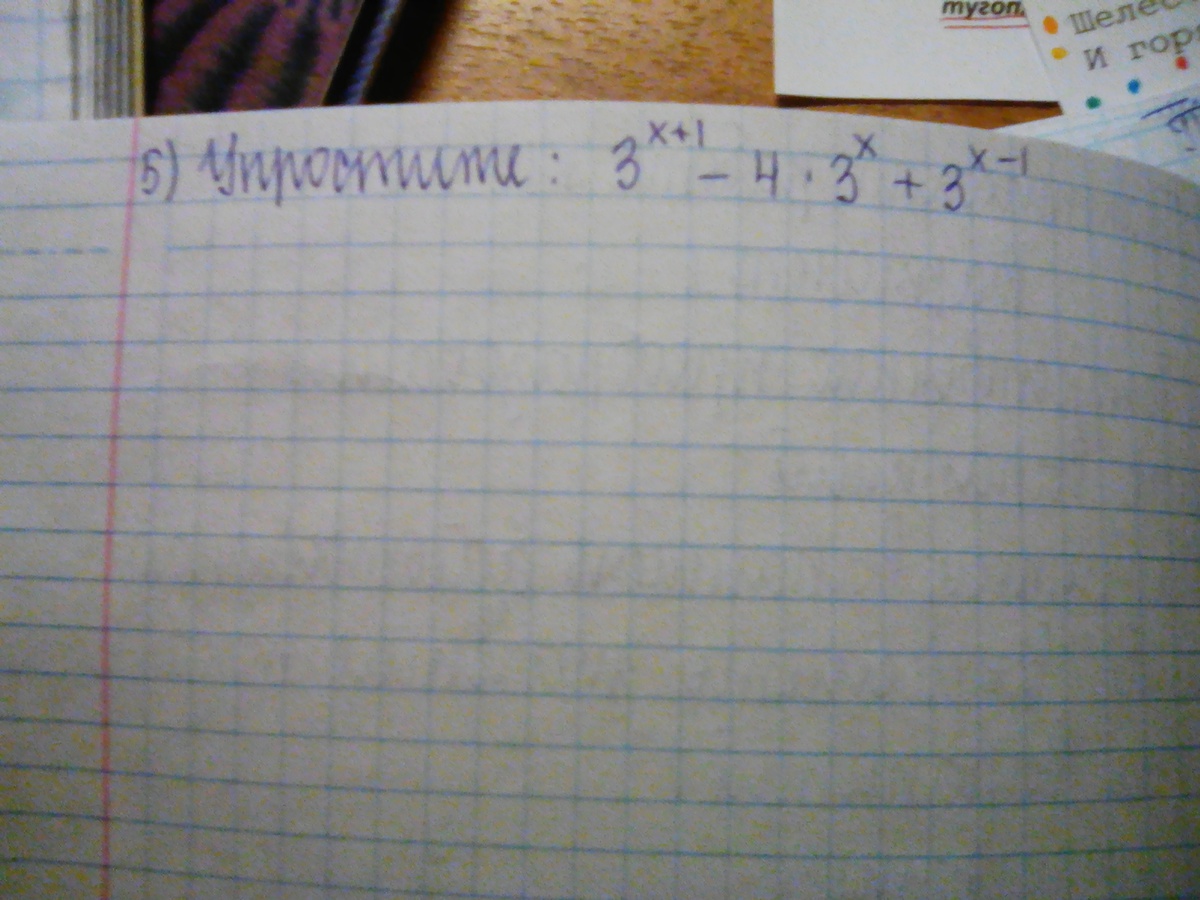 тугоп
Шелес
И гор
5) Упростите: 3^{x+1} - 4 · 3^x + 3^{x-1}